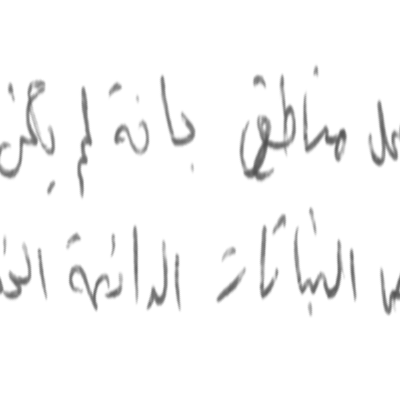 مناطق بانه لم يكن
النباتات الدائمة